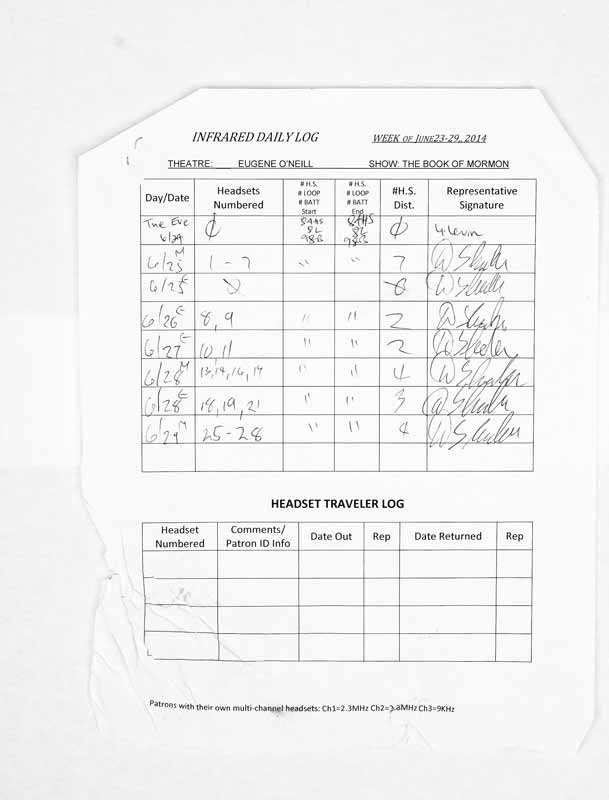 INFRARED DAILY LOG WEEK OF JUNE23-29,, 2014
THEATRE: EUGENE O'NEILL SHOW: THE BOOK OF MORMON
Day/Date Headsets Numbered # H.S. # LOOP # BATT Start # H.S. # LOOP # BATT End #H.S. Dist. Representative Signature
Tue Eve 6/24 ∅ 8L 98B ∅ Levin
6/25 M 1-7 " 7
6/25 E
6/26 E 8, 9 " " 2
6/27 E 10, 11 " " 2
6/28 M 13, 14, 16, 17 " " 4
6/28 E 18, 19, 21 " " 3
6/29 M 25-28 " " 4
HEADSET TRAVELER LOG
Headset Numbered Comments/ Patron ID Info Date Out Rep Date Returned Rep
Patrons with their own multi-channel headsets: Ch1=2.3MHz Ch2=2.8MHz Ch3=9KHz